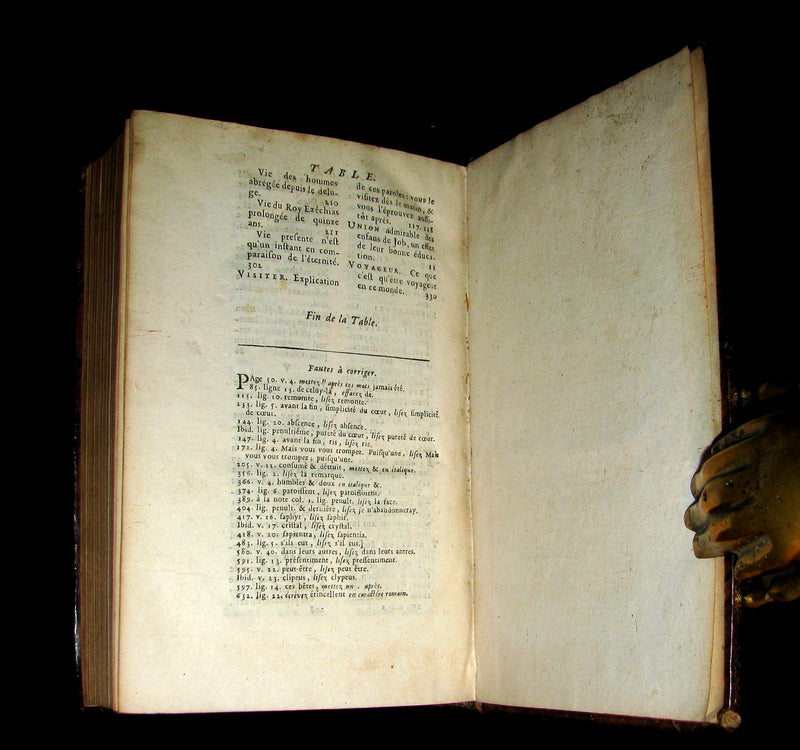 TABLE.
Vie des hommes
abrégée depuis le délu-
ge. 210
Vie du Roy Ezéchias
prolongée de quinze
ans. 211
Vie presente n'est
qu'un instant en com-
paraison de l'éternité.
302
VISITER. Explication
de ces paroles: vous le
visitez dès le matin, &
vous l'éprouvez aussi-
tôt aprés. 117.118
UNION admirable des
enfans de Job, un effet
de leur bonne éduca-
tion. 11
VOYAGEUR. Ce que
c'est qu'être voyageur
en ce monde. 330
Fin de la Table.
Fautes à corriger.
PAge 50. v. 4. mettez après ces mots jamais été.
85. ligne 13. de celuy-là, effacez de.
115. lig. 10. remumte, lisez remonte.
133. lig. 5. avant la fin, simplicité du cœur, lisez simplicité
de cœur.
144. lig. 20. abscence, lisez absence.
Ibid. lig. penultiéme, pureté du cœur, lisez pureté de cœur.
147. lig. 4. avant la fin, ris, lisez rie.
172. lig. 4. Mais vous vous trompez. Puisqu'une, lisez Mais
vous vous trompez; puisqu'une.
205. v. 12. consumé & détruit, mettez & en italique.
356. lig. 2. lisez la remarque.
366. v. 4. humbles & doux en italique &.
374. lig. 6. paroissent, lisez paroissoient.
389. à la note col. 1. lig. penult. lisez la face.
404. lig. penult. & derniére, lisez je n'abandonneray.
417. v. 16. saphyr, lisez saphir.
Ibid. v. 17. cristal, lisez crystal.
418. v. 20. sapientta, lisez sapientia.
483. lig. 5. s'ils eut, lisez s'il eut.]
580. v. 40. dans leurs autres, lisez dans leurs antres.
591. lig. 13. présentiment, lisez pressentiment.
595. v. 22. peut-être, lisez peut être.
Ibid. v. 23. clipeus, lisez clypeus.
597. lig. 14. ces bêtes, mettez un . après.
632. lig. 22. écrivez étincellent en caractère romain.